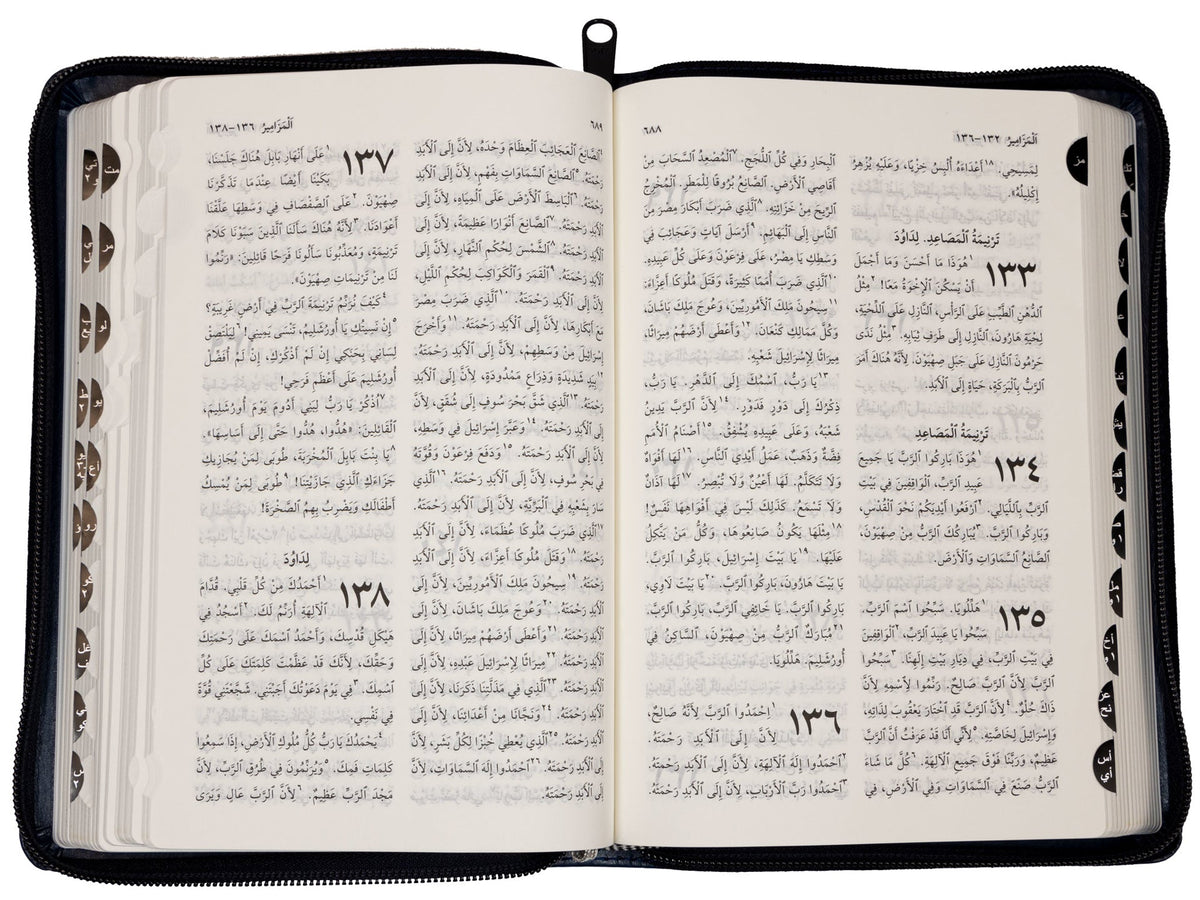 اَلْمَزَامِيرُ ١٣٢–١٣٦
٦٨٨
لِمَسِيحِي. ١٨أَعْدَاءَهُ أُلْبِسُ خِزْيًا، وَعَلَيْهِ يُزْهِرُ
إِكْلِيلُهُ».
تَرْنِيمَةُ ٱلْمَصَاعِدِ. لِدَاوُدَ
١٣٣
١هُوَذَا مَا أَحْسَنَ وَمَا أَجْمَلَ
أَنْ يَسْكُنَ ٱلْإِخْوَةُ مَعًا! ٢مِثْلُ
ٱلدُّهْنِ ٱلطَّيِّبِ عَلَى ٱلرَّأْسِ، ٱلنَّازِلِ عَلَى ٱللِّحْيَةِ،
لِحْيَةِ هَارُونَ، ٱلنَّازِلِ إِلَى طَرَفِ ثِيَابِهِ. ٣مِثْلُ نَدَى
حَرْمُونَ ٱلنَّازِلِ عَلَى جَبَلِ صِهْيَوْنَ. لِأَنَّهُ هُنَاكَ أَمَرَ
ٱلرَّبُّ بِٱلْبَرَكَةِ، حَيَاةٍ إِلَى ٱلْأَبَدِ.
تَرْنِيمَةُ ٱلْمَصَاعِدِ
١٣٤
١هُوَذَا بَارِكُوا ٱلرَّبَّ يَا جَمِيعَ
عَبِيدِ ٱلرَّبِّ، ٱلْوَاقِفِينَ فِي بَيْتِ
ٱلرَّبِّ بِٱللَّيَالِي. ٢ٱرْفَعُوا أَيْدِيَكُمْ نَحْوَ ٱلْقُدْسِ،
وَبَارِكُوا ٱلرَّبَّ. ٣يُبَارِكُكَ ٱلرَّبُّ مِنْ صِهْيَوْنَ،
ٱلصَّانِعُ ٱلسَّمَاوَاتِ وَٱلْأَرْضَ.
١٣٥
١هَلِّلُويَا. سَبِّحُوا ٱسْمَ ٱلرَّبِّ.
سَبِّحُوا يَا عَبِيدَ ٱلرَّبِّ، ٢ٱلْوَاقِفِينَ
فِي بَيْتِ ٱلرَّبِّ، فِي دِيَارِ بَيْتِ إِلَهِنَا. ٣سَبِّحُوا
ٱلرَّبَّ لِأَنَّ ٱلرَّبَّ صَالِحٌ. رَنِّمُوا لِٱسْمِهِ لِأَنَّ
ذَاكَ حُلْوٌ. ٤لِأَنَّ ٱلرَّبَّ قَدِ ٱخْتَارَ يَعْقُوبَ لِذَاتِهِ،
وَإِسْرَائِيلَ لِخَاصَّتِهِ. ٥لِأَنِّي أَنَا قَدْ عَرَفْتُ أَنَّ ٱلرَّبَّ
عَظِيمٌ، وَرَبَّنَا فَوْقَ جَمِيعِ ٱلْآلِهَةِ. ٦كُلَّ مَا شَاءَ
ٱلرَّبُّ صَنَعَ فِي ٱلسَّمَاوَاتِ وَفِي ٱلْأَرْضِ، فِي
ٱلْبِحَارِ وَفِي كُلِّ ٱللُّجَجِ. ٧ٱلْمُصْعِدُ ٱلسَّحَابَ مِنْ
أَقَاصِي ٱلْأَرْضِ. ٱلصَّانِعُ بُرُوقًا لِلْمَطَرِ. ٱلْمُخْرِجُ
ٱلرِّيحَ مِنْ خَزَائِنِهِ. ٨ٱلَّذِي ضَرَبَ أَبْكَارَ مِصْرَ مِنَ
ٱلنَّاسِ إِلَى ٱلْبَهَائِمِ. ٩أَرْسَلَ آيَاتٍ وَعَجَائِبَ فِي
وَسْطِكِ يَا مِصْرُ، عَلَى فِرْعَوْنَ وَعَلَى كُلِّ عَبِيدِهِ.
١٠ٱلَّذِي ضَرَبَ أُمَمًا كَثِيرَةً، وَقَتَلَ مُلُوكًا أَعِزَّاءَ:
١١سِيحُونَ مَلِكَ ٱلْأَمُورِيِّينَ، وَعُوجَ مَلِكَ بَاشَانَ،
وَكُلَّ مَمَالِكِ كَنْعَانَ. ١٢وَأَعْطَى أَرْضَهُمْ مِيرَاثًا،
مِيرَاثًا لِإِسْرَائِيلَ شَعْبِهِ.
١٣يَا رَبُّ، ٱسْمُكَ إِلَى ٱلدَّهْرِ. يَا رَبُّ،
ذِكْرُكَ إِلَى دَوْرٍ فَدَوْرٍ. ١٤لِأَنَّ ٱلرَّبَّ يَدِينُ
شَعْبَهُ، وَعَلَى عَبِيدِهِ يُشْفِقُ. ١٥أَصْنَامُ ٱلْأُمَمِ
فِضَّةٌ وَذَهَبٌ، عَمَلُ أَيْدِي ٱلنَّاسِ. ١٦لَهَا أَفْوَاهٌ
وَلَا تَتَكَلَّمُ. لَهَا أَعْيُنٌ وَلَا تُبْصِرُ. ١٧لَهَا آذَانٌ
وَلَا تَسْمَعُ. كَذَلِكَ لَيْسَ فِي أَفْوَاهِهَا نَفَسٌ!
١٨مِثْلَهَا يَكُونُ صَانِعُوهَا، وَكُلُّ مَنْ يَتَّكِلُ
عَلَيْهَا. ١٩يَا بَيْتَ إِسْرَائِيلَ، بَارِكُوا ٱلرَّبَّ.
يَا بَيْتَ هَارُونَ، بَارِكُوا ٱلرَّبَّ. ٢٠يَا بَيْتَ لَاوِي،
بَارِكُوا ٱلرَّبَّ. يَا خَائِفِي ٱلرَّبِّ، بَارِكُوا ٱلرَّبَّ.
٢١مُبَارَكٌ ٱلرَّبُّ مِنْ صِهْيَوْنَ، ٱلسَّاكِنُ فِي
أُورُشَلِيمَ. هَلِّلُويَا.
١٣٦
١اِحْمَدُوا ٱلرَّبَّ لِأَنَّهُ صَالِحٌ،
لِأَنَّ إِلَى ٱلْأَبَدِ رَحْمَتَهُ.
٢ٱحْمَدُوا إِلَهَ ٱلْآلِهَةِ، لِأَنَّ إِلَى ٱلْأَبَدِ رَحْمَتَهُ.
٣ٱحْمَدُوا رَبَّ ٱلْأَرْبَابِ، لِأَنَّ إِلَى ٱلْأَبَدِ رَحْمَتَهُ.
٦٨٩
اَلْمَزَامِيرُ ١٣٦–١٣٨
٤ٱلصَّانِعَ ٱلْعَجَائِبَ ٱلْعِظَامَ وَحْدَهُ، لِأَنَّ إِلَى ٱلْأَبَدِ
رَحْمَتَهُ. ٥ٱلصَّانِعَ ٱلسَّمَاوَاتِ بِفَهْمٍ، لِأَنَّ إِلَى ٱلْأَبَدِ
رَحْمَتَهُ. ٦ٱلْبَاسِطَ ٱلْأَرْضَ عَلَى ٱلْمِيَاهِ، لِأَنَّ إِلَى ٱلْأَبَدِ
رَحْمَتَهُ. ٧ٱلصَّانِعَ أَنْوَارًا عَظِيمَةً، لِأَنَّ إِلَى ٱلْأَبَدِ
رَحْمَتَهُ. ٨ٱلشَّمْسَ لِحُكْمِ ٱلنَّهَارِ، لِأَنَّ إِلَى ٱلْأَبَدِ
رَحْمَتَهُ. ٩ٱلْقَمَرَ وَٱلْكَوَاكِبَ لِحُكْمِ ٱللَّيْلِ،
لِأَنَّ إِلَى ٱلْأَبَدِ رَحْمَتَهُ. ١٠ٱلَّذِي ضَرَبَ مِصْرَ
مَعَ أَبْكَارِهَا، لِأَنَّ إِلَى ٱلْأَبَدِ رَحْمَتَهُ. ١١وَأَخْرَجَ
إِسْرَائِيلَ مِنْ وَسَطِهِمْ، لِأَنَّ إِلَى ٱلْأَبَدِ رَحْمَتَهُ.
١٢بِيَدٍ شَدِيدَةٍ وَذِرَاعٍ مَمْدُودَةٍ، لِأَنَّ إِلَى ٱلْأَبَدِ
رَحْمَتَهُ. ١٣ٱلَّذِي شَقَّ بَحْرَ سُوفٍ إِلَى شُقَقٍ، لِأَنَّ
إِلَى ٱلْأَبَدِ رَحْمَتَهُ. ١٤وَعَبَّرَ إِسْرَائِيلَ فِي وَسَطِهِ،
لِأَنَّ إِلَى ٱلْأَبَدِ رَحْمَتَهُ. ١٥وَدَفَعَ فِرْعَوْنَ وَقُوَّتَهُ
فِي بَحْرِ سُوفٍ، لِأَنَّ إِلَى ٱلْأَبَدِ رَحْمَتَهُ. ١٦ٱلَّذِي
سَارَ بِشَعْبِهِ فِي ٱلْبَرِّيَّةِ، لِأَنَّ إِلَى ٱلْأَبَدِ رَحْمَتَهُ.
١٧ٱلَّذِي ضَرَبَ مُلُوكًا عُظَمَاءَ، لِأَنَّ إِلَى ٱلْأَبَدِ
رَحْمَتَهُ. ١٨وَقَتَلَ مُلُوكًا أَعِزَّاءَ، لِأَنَّ إِلَى ٱلْأَبَدِ
رَحْمَتَهُ. ١٩سِيحُونَ مَلِكَ ٱلْأَمُورِيِّينَ، لِأَنَّ إِلَى
ٱلْأَبَدِ رَحْمَتَهُ. ٢٠وَعُوجَ مَلِكَ بَاشَانَ، لِأَنَّ إِلَى
ٱلْأَبَدِ رَحْمَتَهُ. ٢١وَأَعْطَى أَرْضَهُمْ مِيرَاثًا، لِأَنَّ إِلَى
ٱلْأَبَدِ رَحْمَتَهُ. ٢٢مِيرَاثًا لِإِسْرَائِيلَ عَبْدِهِ، لِأَنَّ إِلَى
ٱلْأَبَدِ رَحْمَتَهُ. ٢٣ٱلَّذِي فِي مَذَلَّتِنَا ذَكَرَنَا، لِأَنَّ إِلَى
ٱلْأَبَدِ رَحْمَتَهُ. ٢٤وَنَجَّانَا مِنْ أَعْدَائِنَا، لِأَنَّ إِلَى
ٱلْأَبَدِ رَحْمَتَهُ. ٢٥ٱلَّذِي يُعْطِي خُبْزًا لِكُلِّ بَشَرٍ، لِأَنَّ
إِلَى ٱلْأَبَدِ رَحْمَتَهُ. ٢٦ٱحْمَدُوا إِلَهَ ٱلسَّمَاوَاتِ، لِأَنَّ
إِلَى ٱلْأَبَدِ رَحْمَتَهُ.
١٣٧
١عَلَى أَنْهَارِ بَابِلَ هُنَاكَ جَلَسْنَا،
بَكَيْنَا أَيْضًا عِنْدَمَا تَذَكَّرْنَا
صِهْيَوْنَ. ٢عَلَى ٱلصَّفْصَافِ فِي وَسَطِهَا عَلَّقْنَا
أَعْوَادَنَا. ٣لِأَنَّهُ هُنَاكَ سَأَلَنَا ٱلَّذِينَ سَبَوْنَا كَلَامَ
تَرْنِيمَةٍ، وَمُعَذِّبُونَا سَأَلُونَا فَرَحًا قَائِلِينَ: «رَنِّمُوا
لَنَا مِنْ تَرْنِيمَاتِ صِهْيَوْنَ».
٤كَيْفَ نُرَنِّمُ تَرْنِيمَةَ ٱلرَّبِّ فِي أَرْضٍ غَرِيبَةٍ؟
٥إِنْ نَسِيتُكِ يَا أُورُشَلِيمُ، تَنْسَى يَمِينِي! ٦لِيَلْتَصِقْ
لِسَانِي بِحَنَكِي إِنْ لَمْ أَذْكُرْكِ، إِنْ لَمْ أُفَضِّلْ
أُورُشَلِيمَ عَلَى أَعْظَمِ فَرَحِي!
٧اُذْكُرْ يَا رَبُّ لِبَنِي أَدُومَ يَوْمَ أُورُشَلِيمَ،
ٱلْقَائِلِينَ: «هُدُّوا، هُدُّوا حَتَّى إِلَى أَسَاسِهَا».
٨يَا بِنْتَ بَابِلَ ٱلْمُخْرَبَةَ، طُوبَى لِمَنْ يُجَازِيكِ
جَزَاءَكِ ٱلَّذِي جَازَيْتِنَا! ٩طُوبَى لِمَنْ يُمْسِكُ
أَطْفَالَكِ وَيَضْرِبُ بِهِمُ ٱلصَّخْرَةَ!
لِدَاوُدَ
١٣٨
١أَحْمَدُكَ مِنْ كُلِّ قَلْبِي. قُدَّامَ
ٱلْآلِهَةِ أُرَنِّمُ لَكَ. ٢أَسْجُدُ فِي
هَيْكَلِ قُدْسِكَ، وَأَحْمَدُ ٱسْمَكَ عَلَى رَحْمَتِكَ
وَحَقِّكَ، لِأَنَّكَ قَدْ عَظَّمْتَ كَلِمَتَكَ عَلَى كُلِّ
ٱسْمِكَ. ٣فِي يَوْمَ دَعَوْتُكَ أَجَبْتَنِي. شَجَّعْتَنِي قُوَّةً
فِي نَفْسِي.
٤يَحْمَدُكَ يَا رَبُّ كُلُّ مُلُوكِ ٱلْأَرْضِ، إِذَا سَمِعُوا
كَلِمَاتِ فَمِكَ. ٥وَيُرَنِّمُونَ فِي طُرُقِ ٱلرَّبِّ، لِأَنَّ
مَجْدَ ٱلرَّبِّ عَظِيمٌ. ٦لِأَنَّ ٱلرَّبَّ عَالٍ وَيَرَى
مز
أس
أي
مت
مر
لو
يو
أع
رو